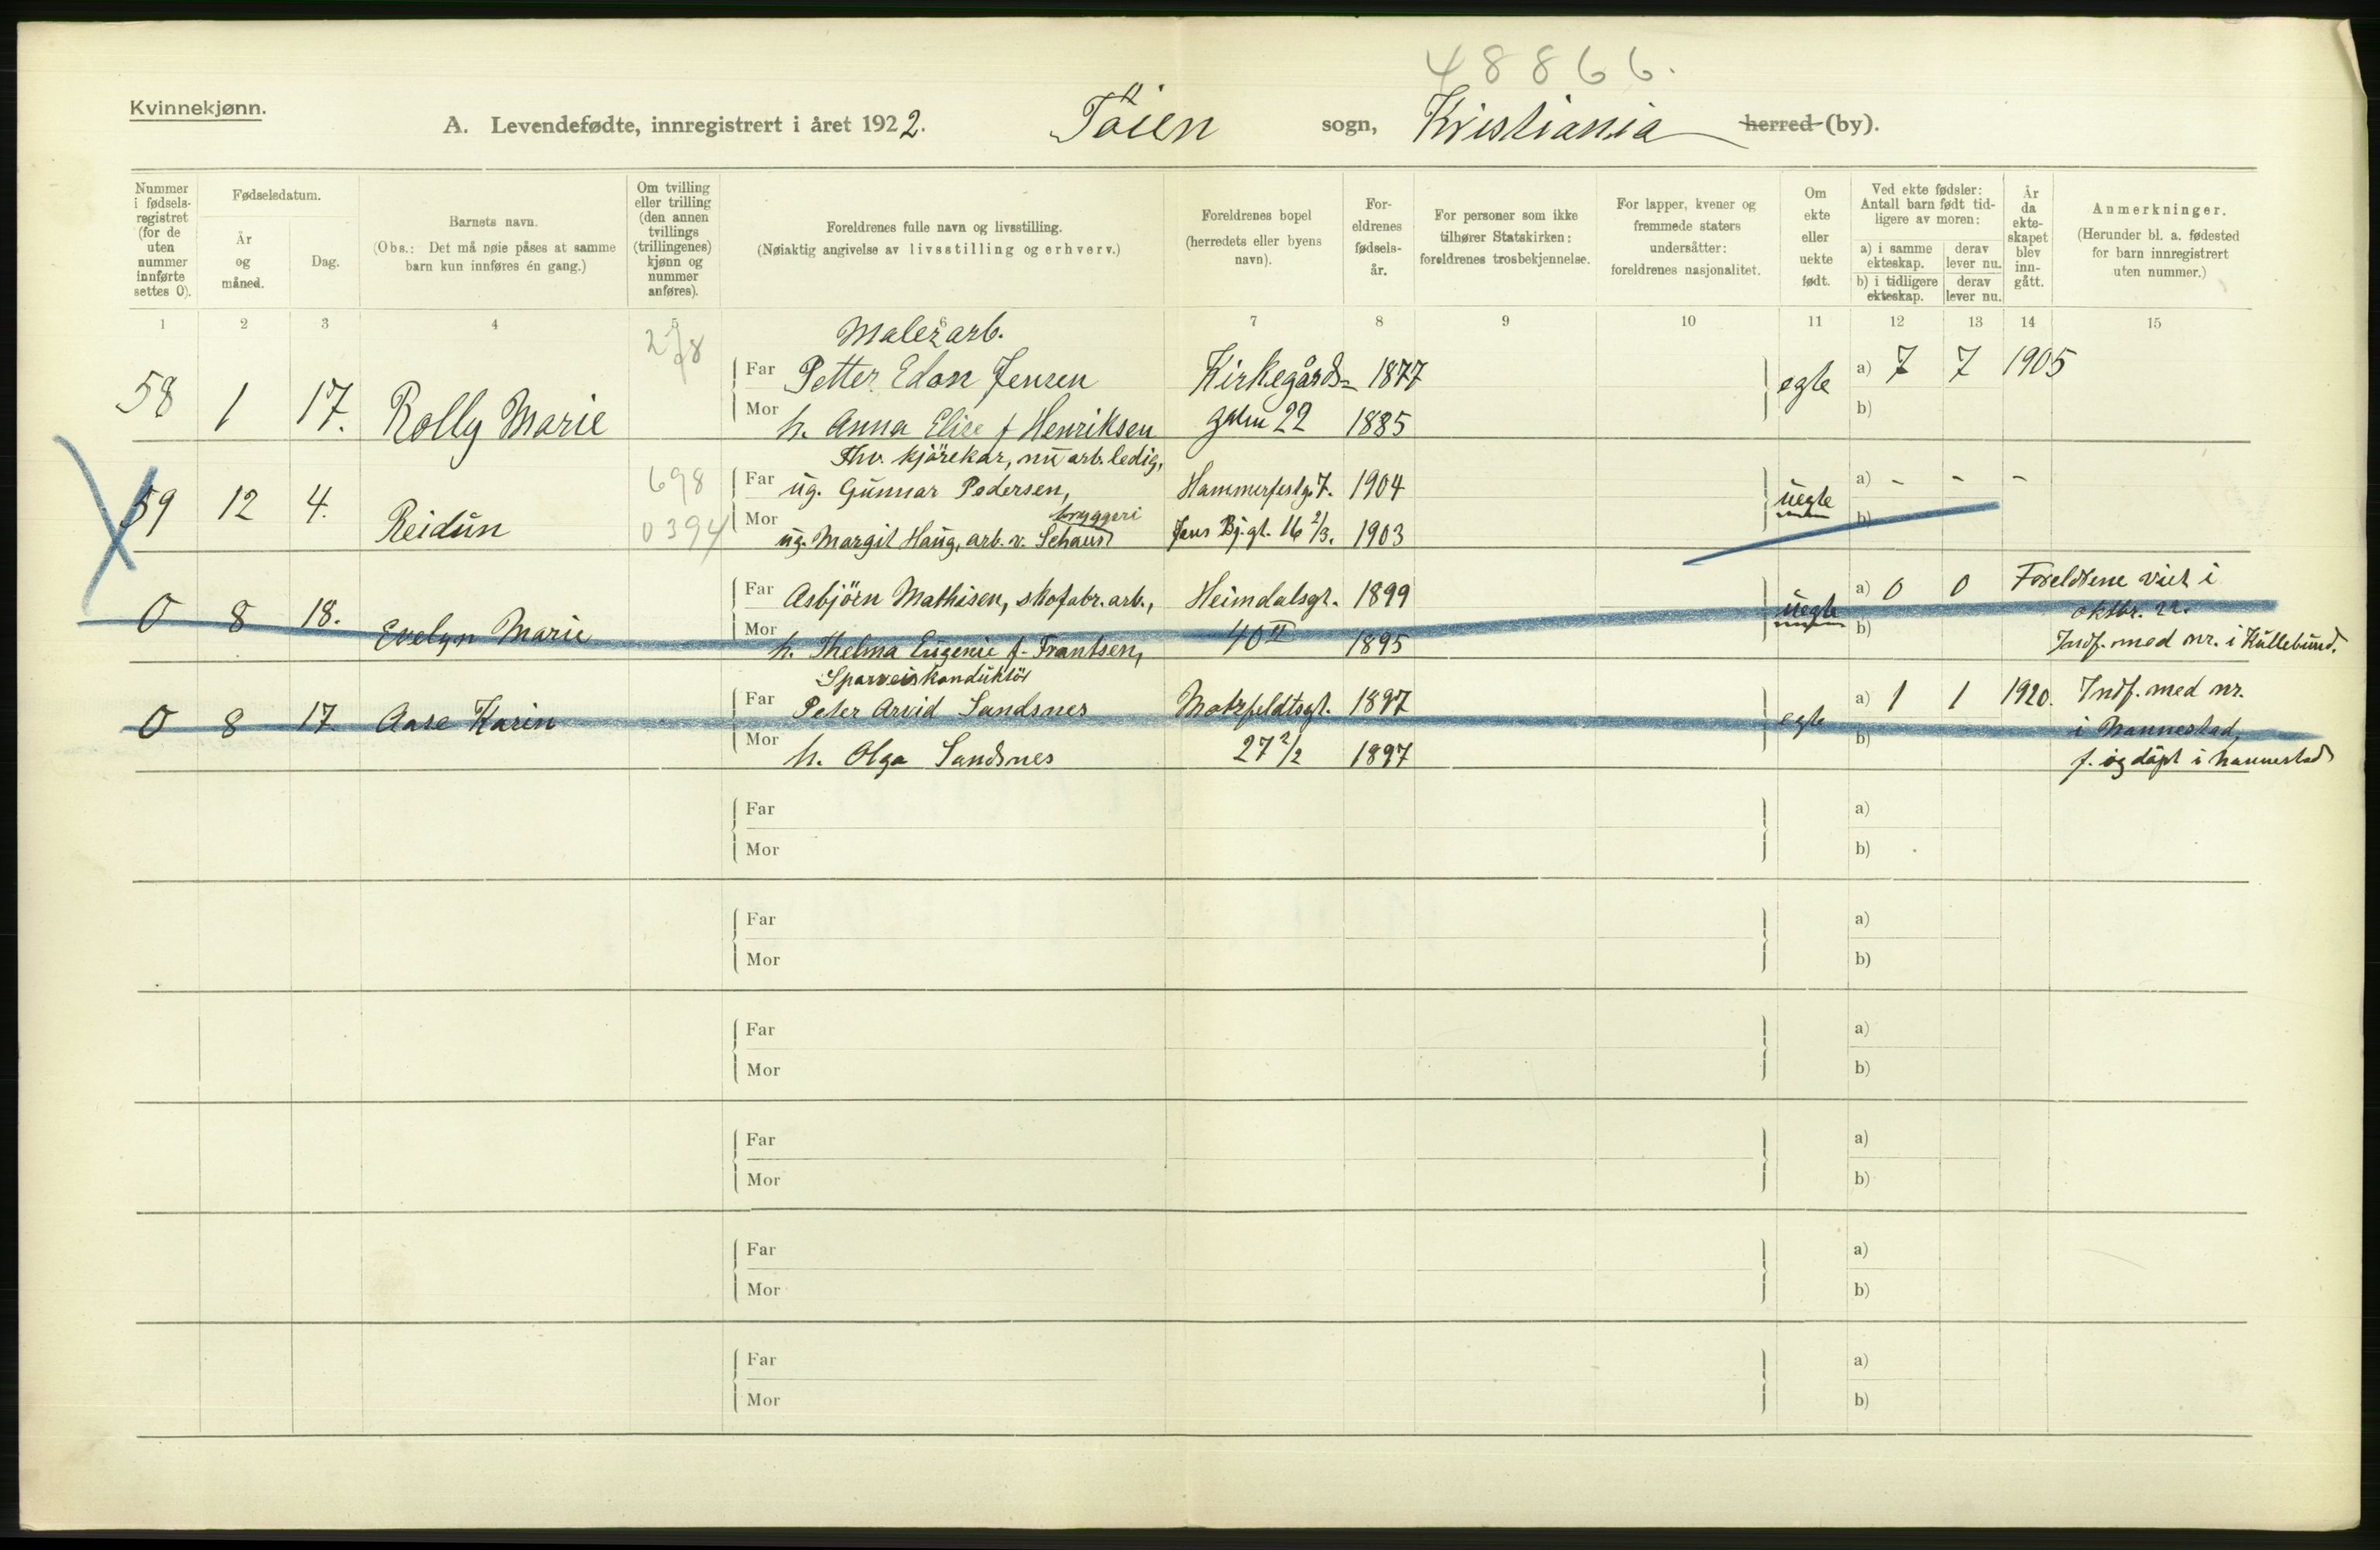 48866.
Kvinnekjønn.
A. Levendefødte, innregistrert i året 1922. Töien sogn, Kristiania herred (by).
Nummer i fødsels-registret (for de uten nummer innførte settes 0).
Fødselsdatum.
År og måned.
Dag.
Barnets navn.
(Obs.: Det må nøie påses at samme barn kun innføres én gang.)
Om tvilling eller trilling (den annen tvillings (trillingenes) kjønn og nummer anføres).
Foreldrenes fulle navn og livsstilling.
(Nøiaktig angivelse av livsstilling og erhverv.)
Foreldrenes bopel (herredets eller byens navn).
For-eldrenes fødsels-år.
For personer som ikke tilhører Statskirken: foreldrenes trosbekjennelse.
For lapper, kvener og fremmede staters undersåtter: foreldrenes nasjonalitet.
Om ekte eller uekte født.
Ved ekte fødsler: Antall barn født tid-ligere av moren:
a) i samme ekteskap.
derav lever nu.
b) i tidligere ekteskap.
derav lever nu.
År da ekte-skapet blev inn-gått.
Anmerkninger.
(Herunder bl. a. fødested for barn innregistrert uten nummer.)
1 2 3 4 5 6 7 8 9 10 11 12 13 14 15
Malerarb.
58 1 17. Rolly Marie
Far Petter Edon Jensen Kirkegårds- 1877 egte a) 7 7 1905
Mor h. Anna Elise f Henriksen 22 1885 b)
Thv. kjörekar, nu arb.ledig,
59 12 4. Reidun 698
Far ug. Gunnar Pedersen, Hammerfestg. 7. 1904 uegte a) - - -
bryggeri
0394 Mor ug. Margit Haug, arb. v. Schaus Jens Bj.gt. 16 2/3. 1903 b)
0 8 18. Evelyn Marie
Far Asbjörn Mathisen, skofabr.arb., Heimdalsgt. 1899 uegte a) 0 0 Foreldrene viet i
oktbr. 22.
Mor h. Thelma Eugenie f. Frantsen, 40 II 1895 b) Indf. med nr. i Hullebund.
Sparveiskonduktör
0 8 17. Aase Karin
Far Peter Arvid Sandsnes Motzfeldtsgt. 1897 egte a) 1 1 1920. Indf. med nr.
i Nannestad,
Mor h. Olga Sandsnes 27 2/2 1897 b) f. og döpt i Nannestad
Far a)
Mor b)
Far a)
Mor b)
Far a)
Mor b)
Far a)
Mor b)
Far a)
Mor b)
Far a)
Mor b)